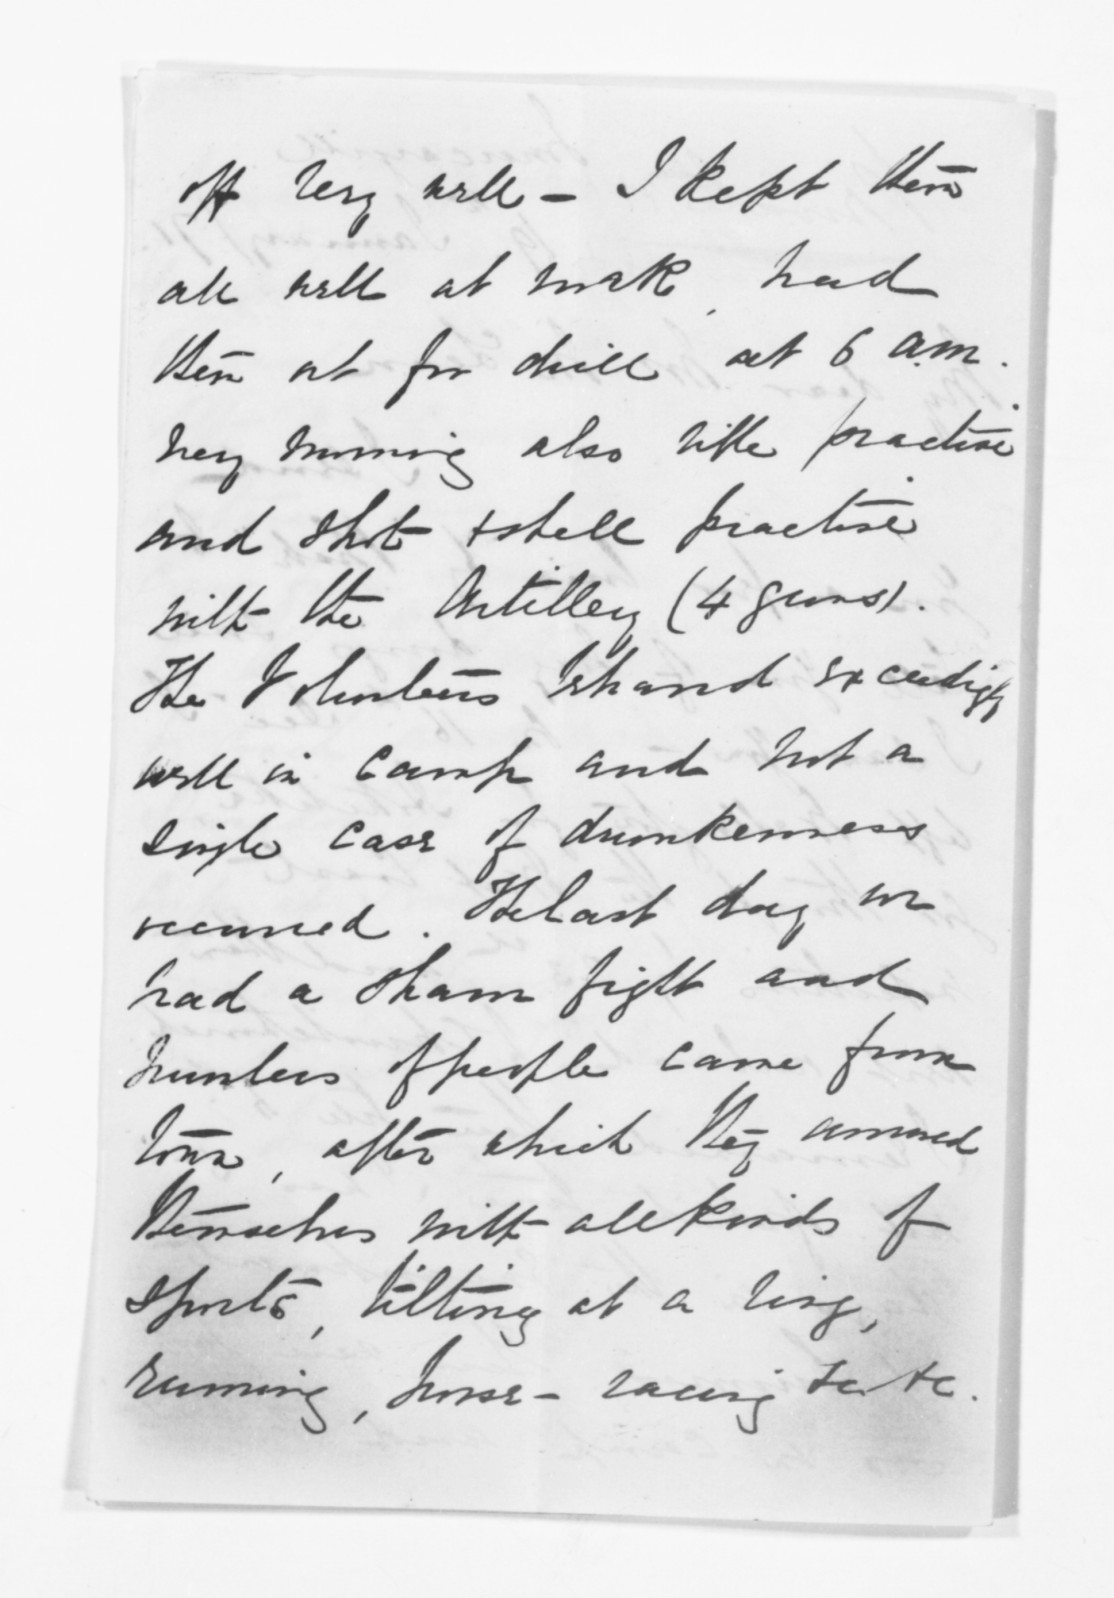 off very well – I kept them
all well at work, had
them at for drill at 6 a.m.
very morning also rifle practise
and shot & shell practise
with the Artillery (4 guns).
The Volunteers behaved exceedigly
well in camp and not a
single case of drunkenness
occurred. The last day we
had a sham fight and
numbers of people came from
town, after which they amused
themselves with all kinds of
sports, tilting at a ring,
running, horse-racing &c. &c.